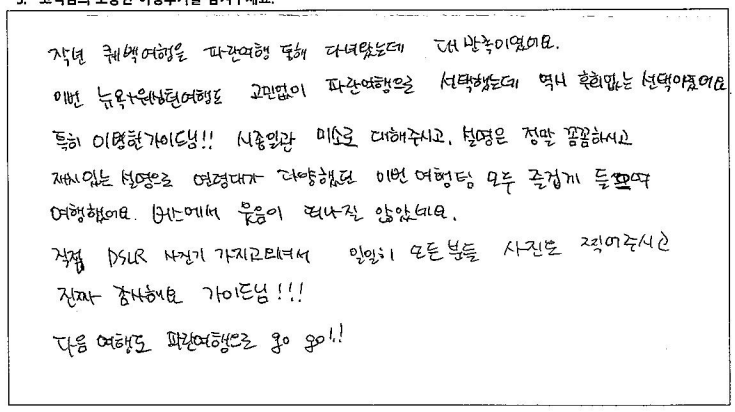 3. 고객님의 소중한 여행후기를 남겨주세요.
작년 퀘백여행을 파란여행 통해 다녀왔는데 대만족이였어요.
이번 뉴욕+워싱턴여행도 고민없이 파란여행으로 선택했는데 역시 후회없는 선택이였어요
특히 이병헌가이드님!! 시종일관 미소로 대해주시고, 설명은 정말 꼼꼼하시고
재치있는 설명으로 연령대가 다양했던 이번 여행팀 모두 즐겁게 들으며
여행했어요. 버스에서 웃음이 떠나질 않았네요.
직접 DSLR 사진기 가지고다녀서 일일히 모든분들 사진도 찍어주시고
진짜 감사해요 가이드님!!!
다음 여행도 파란여행으로 go go!!